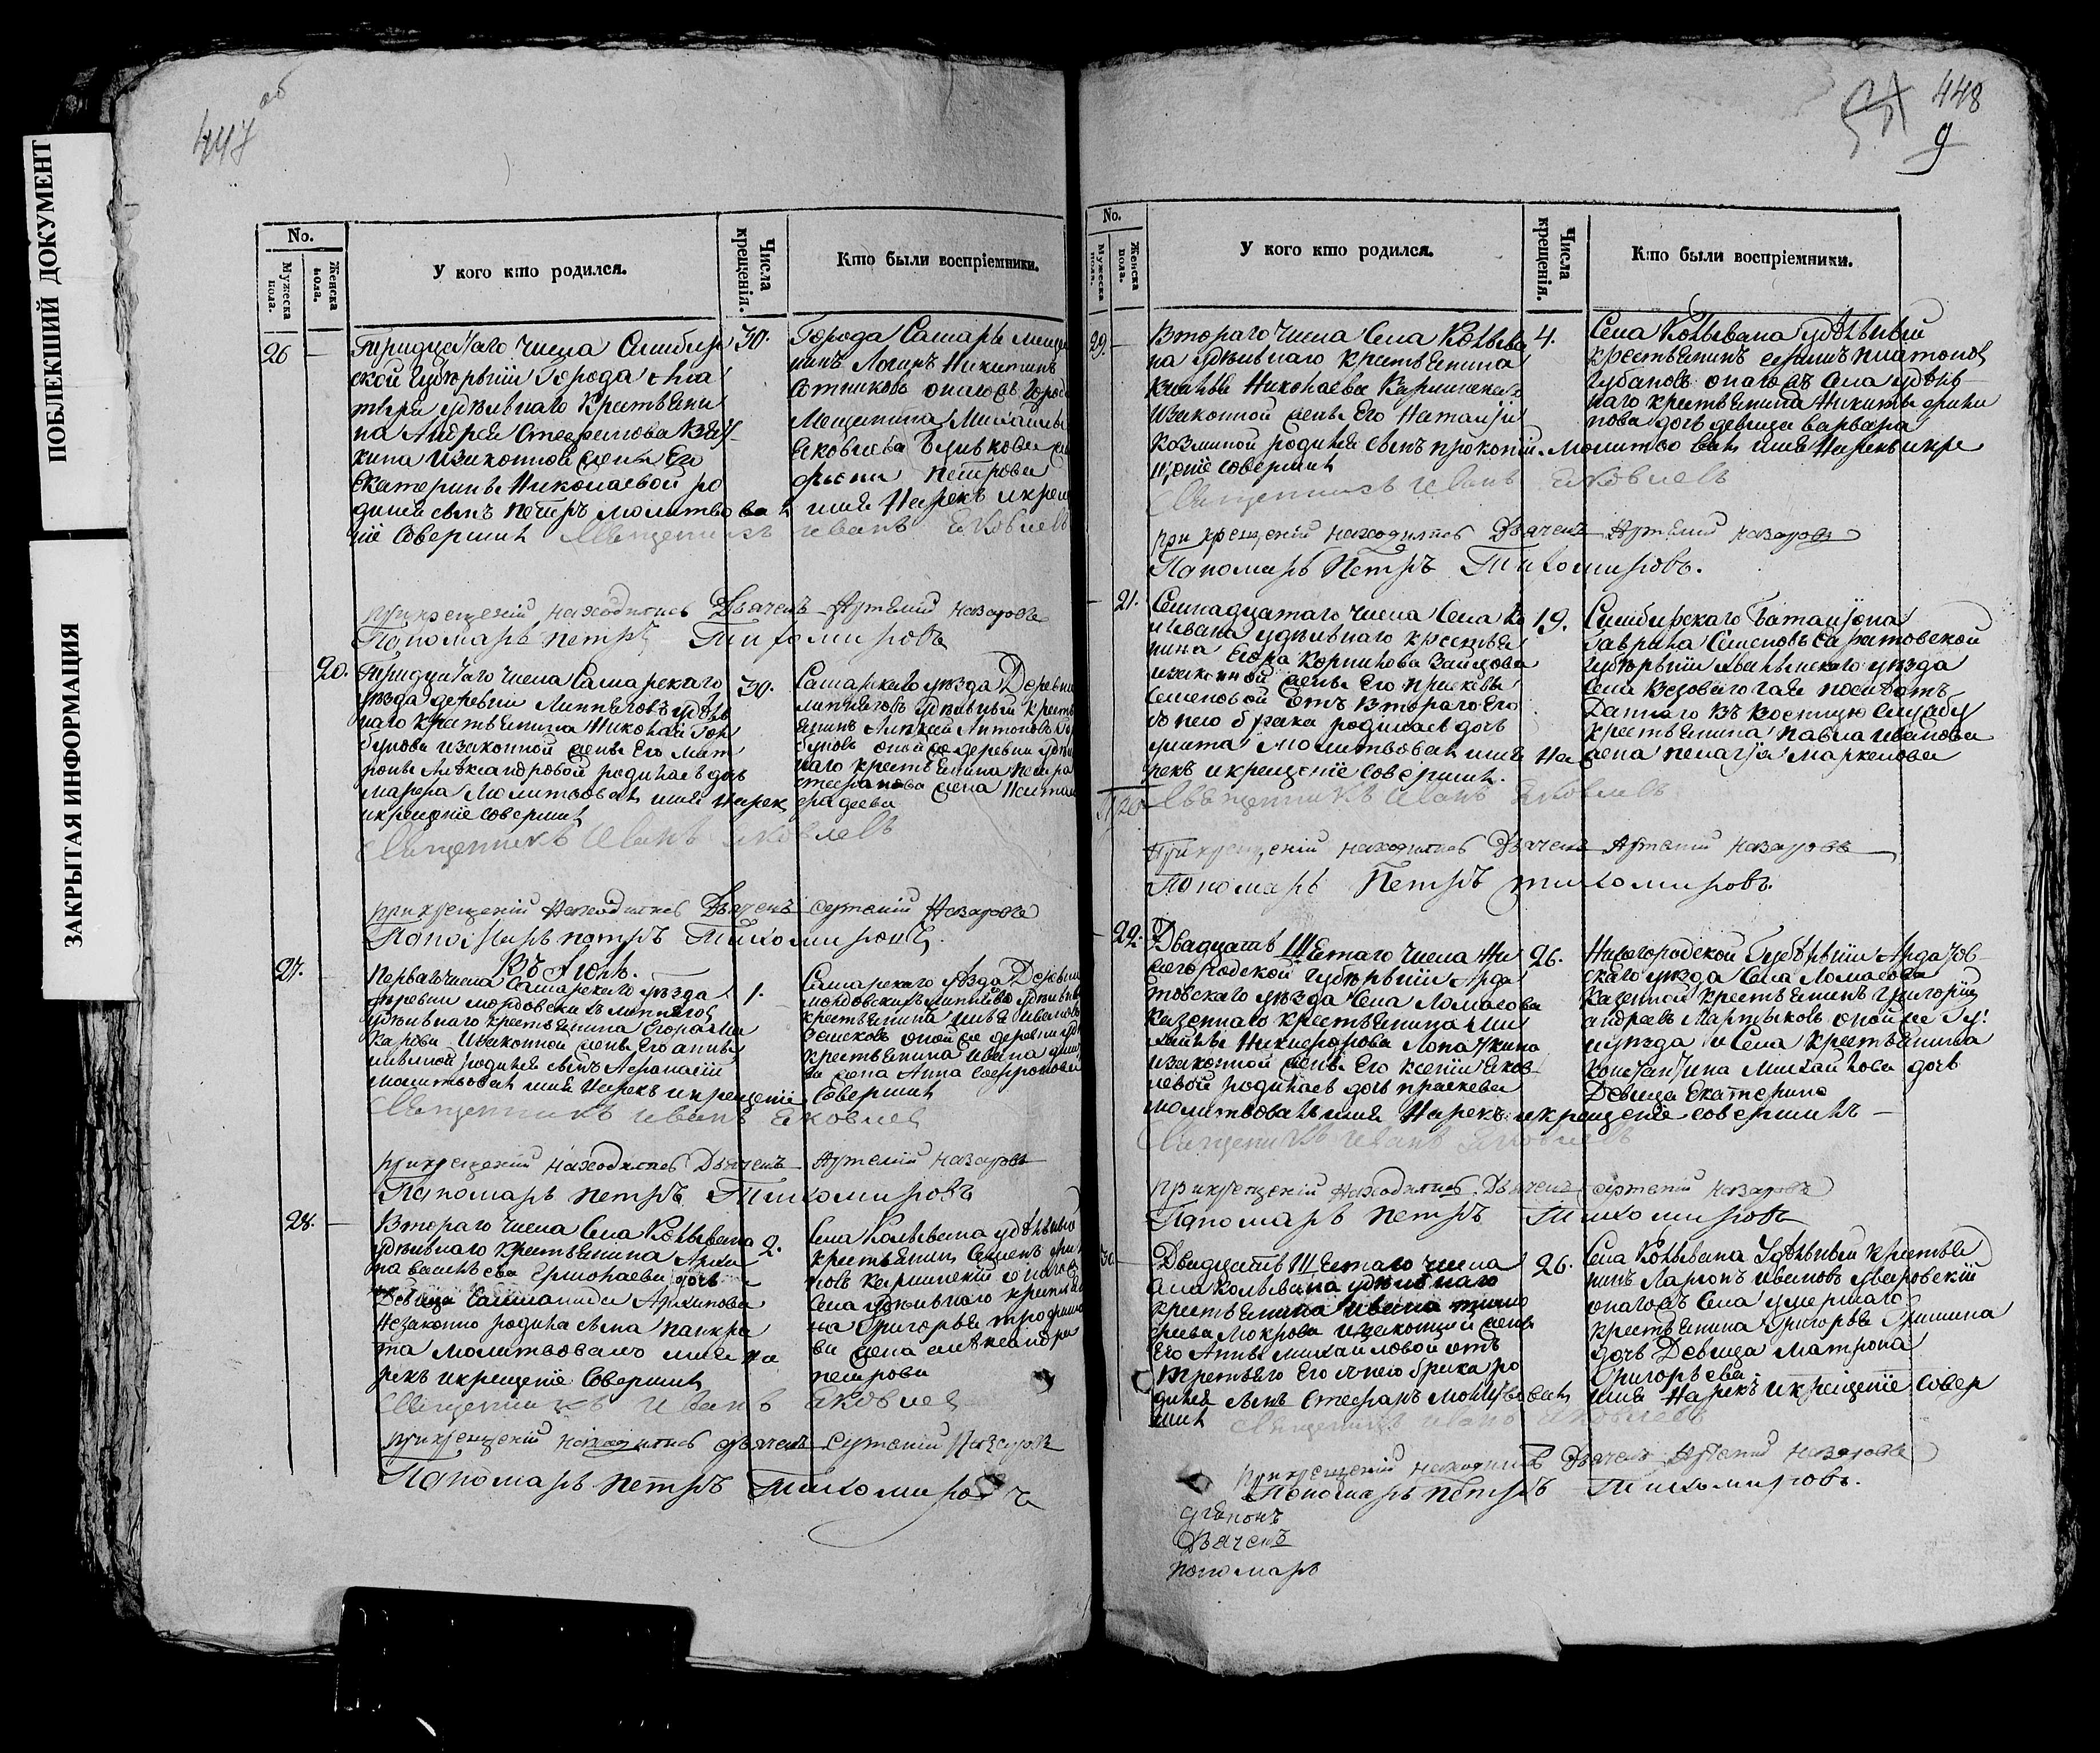 ПОБЛЕКШИЙ ДОКУМЕНТ
ЗАКРЫТАЯ ИНФОРМАЦИЯ
447 об
No.
Мужеска пола.
Женска пола.
У кого кто родился.
Числа крещенія.
Кто были воспріемники.
26
Тридцатаго числа Симбир
ской губерніи Города Ала
тыря удѣльнаго крестьяни
на Андрея Стефанова
кина изаконной жены Его
Екатерины Николаевой ро
дился сынъ Петръ молитвовалъ
ніе совершилъ Священникъ Иванъ Яковлевъ
30.
Города Самары меща
нинъ Логинъ Никитинъ
Сотниковъ онагожъ Города
Мещанина Михаила
Яковлева
Петрова
имя Нарекъ икреще
прикрещеніи находились Дьячекъ Артемій Назаровъ
Пономарь Петръ Тихомировъ
20.
Тридцатаго числа Самарскаго
уѣзда деревни Липяговъ удѣль
наго крестьянина Николая Гор
бунова изаконной жены Его Мат
роны Александровой родилась дочь
Марѳа Молитвовалъ имя нарекъ
икрещеніе совершилъ
Священникъ Иванъ Яковлевъ
30.
Самарскаго уѣзда Деревни
Липяговъ удѣльный кресть
янинъ Алексей Антоновъ
буновъ онойже деревни удѣль
наго крестьянина Петра
Стефанова жена Наталья
Фадеева
прикрещеніи Находились Дьячекъ Артемій Назаровъ
Пономарь петръ Тихомировъ
Въ Іюнѣ.
27.
Перваго числа Самарскаго уѣзда
деревни мордовскихъ липяговъ
удѣльнаго крестьянина
изаконной жены Его анны
родился сынъ Аѳанасій
молитвовалъ имя Нарекъ икрещеніе Совершилъ
Священникъ Иванъ Яковлевъ
1.
Самарскаго уѣзда Деревни
мордовскихъ липяговъ удѣльный
крестьянинъ Илья Ивановъ
онойже деревни
крестьянина ивана
жена Анна Софронова
прикрещеніи находились Дьячекъ Артемій назаровъ
Пономарь петръ Тихомировъ
28.
Втораго числа Села Колывана
удѣльнаго крестьянина Архи
па васильева Ермолаева дочь
Девица Саломанида Архипова
Незаконно родила сына панкра
та молитвовалъ имя На
рекъ икрещеніе Совершилъ
Священникъ Иванъ Яковлевъ
2.
Села Колывана удѣльный
крестьянинъ Семенъ
новъ Карлинскій онагожъ
Села удѣльнаго крестьяни
на Григорья трофимо
ва жена александра
петрова
прикрещеніи находились дьячекъ Артемій Назаровъ
Пономарь петръ Тихомировъ
448
9
No.
Мужеска пола.
Женска пола.
У кого кто родился.
Числа крещенія.
Кто были воспріемники.
29.
Втораго числа Села Колыва
на удѣльнаго крестьянина
Николаева Карлинскаго
изаконной жены Его Наталіи
Козминой родился сынъ прокопій. Молитвовалъ имя Нарекъ икре
щеніе совершилъ
Священникъ Иванъ Яковлевъ
4.
Села Колывана удѣльный
крестьянинъ ефимъ платоновъ
Губановъ онагожъ Села удѣль
наго крестьянина Никиты
нова дочь девица варвара
при крещеніи находились Дьячекъ Артемій назаровъ
Пономарь Петръ Тихомировъ.
21.
Семнадцатаго числа Села Ко
лывана удѣльнаго крестьяни
нина Егора Корнилова Зайцова
изаконной жены Его прасковьи
Семеновой отъ Втораго Его
сънею брака родилась дочь
улита Молитвовалъ имя На
рекъ икрещеніе совершилъ.
Священникъ Иванъ Яковлевъ
19.
Симбирскаго Баталіона
Гаврила Семеновъ Саратовской
Губерніи Хвалынскаго уѣзда
Села
Даннаго въ военную Службу
крестьянина павла иванова
жена пелагѣя маркелова
При крещеніи находились Дьячекъ Артемій Назаровъ
Пономарь Петръ тихомировъ.
22.
Двадцать Шестаго числа Ни
жегородской губерніи Арда
товскаго уѣзда Села Ломасова
казеннаго крестьянина Ми
хайлы Никифорова Лопаткина
изаконной жены Его Ксеніи Яков
левой родилась дочь праскева
молитвовалъ имя Нарекъ икрещеніе совершилъ
Священникъ Иванъ Яковлевъ
26.
Нижегородской Губерніи Ардатов
скаго уѣзда Села Ломасова
Казенной крестьянинъ Григорій
андреевъ Мартыновъ онойже Гу:
иуѣзда и Села крестьянина
константина Михайлова дочь
Девица Екатерина
прикрещеніи находились Дьячекъ артемій назаровъ
Пономарь петръ Тихомировъ
30.
Двадцать Шестаго числа
Села Колывана удѣльнаго
крестьянина ивана тимо
феева Мокрова изаконной жены
Его Анны михаиловой отъ
третьяго Его сънею брака ро
дился сынъ Стефанъ молитвовалъ имя Нарекъ икрещеніе совер
шилъ Священникъ Иванъ Яковлевъ
26.
Села Колывана Удѣльный крестья
нинъ Ларіонъ ивановъ Уваровскій
онагожъ Села умершаго
крестьянина Григорья Гришина
дочь Девица Матрона
Григорьева
прикрещеніи находились Дьячекъ Артемій Назаровъ
Пономарь петръ Тихомировъ.
Дьячекъ
пономарь